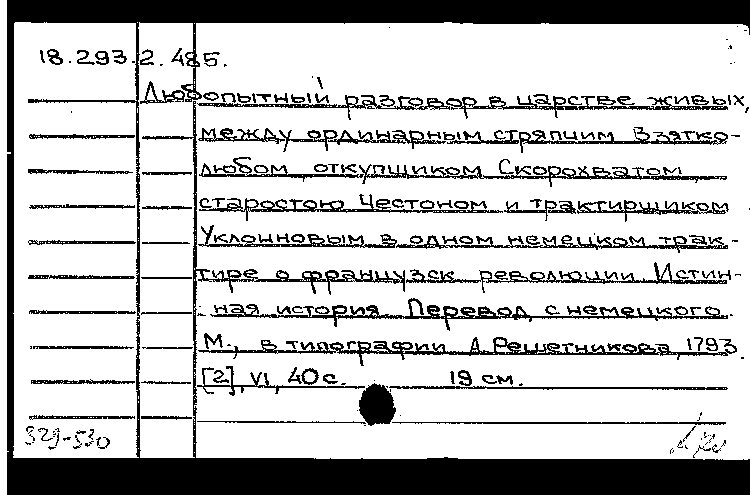 18.293.2.485.
Любопытный разговор в царстве живых,
между ординарным стряпчим Взятко-
любом, откупщиком Скорохватом,
старостою Честоном и трактирщиком
Уклонновым в одном немецком трак-
тире о французск. революции. Истин-
ная история. Перевод с немецкого.
М., в типографии А. Решетникова, 1793.
[2], VI, 40 с. 19 см.
329-530